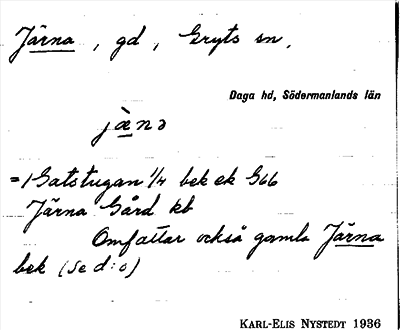 Järna, gd, Gryts sn.
Daga hd, Södermanlands län
jæ̀nə
=1 Gatstugan 1/4 bek ek G66
Järna Gård kb
Omfattar också gamla Järna
bek (se d:o)
KARL-ELIS NYSTEDT 1936